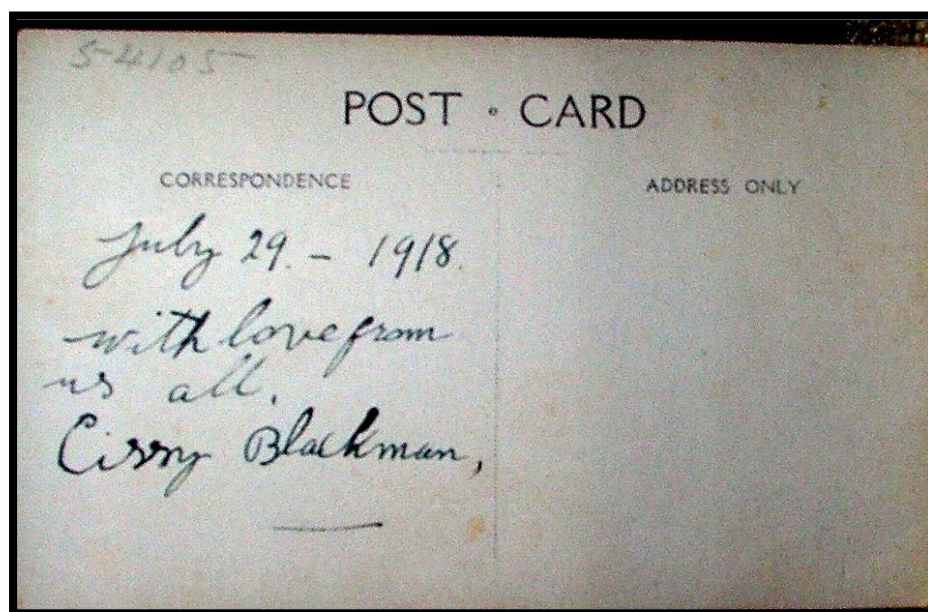 54105
POST · CARD
CORRESPONDENCE
ADDRESS ONLY
July 29. - 1918.
with love from
us all.
Cissy Blackman,